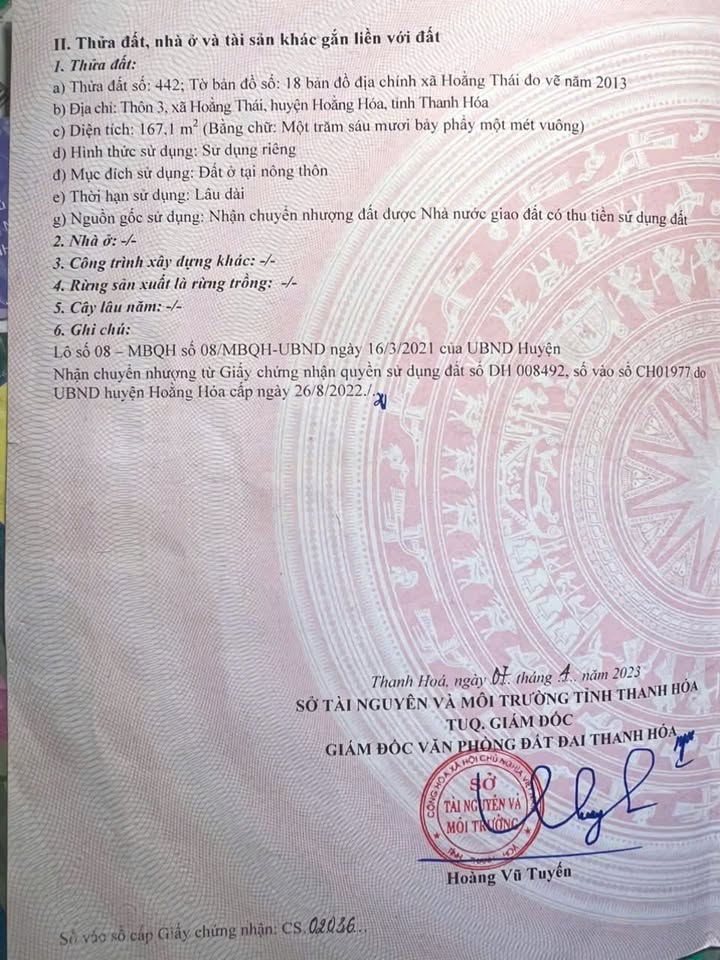 II. Thửa đất, nhà ở và tài sản khác gắn liền với đất
1. Thửa đất:
a) Thửa đất số: 442; Tờ bản đồ số: 18 bản đồ địa chính xã Hoằng Thái do vẽ năm 2013
b) Địa chỉ: Thôn 3, xã Hoằng Thái, huyện Hoằng Hóa, tỉnh Thanh Hóa
c) Diện tích: 167,1 m² (Bằng chữ: Một trăm sáu mươi bảy phẩy một mét vuông)
d) Hình thức sử dụng: Sử dụng riêng
đ) Mục đích sử dụng: Đất ở tại nông thôn
e) Thời hạn sử dụng: Lâu dài
g) Nguồn gốc sử dụng: Nhận chuyển nhượng đất được Nhà nước giao đất có thu tiền sử dụng đất
2. Nhà ở: -/-
3. Công trình xây dựng khác: -/-
4. Rừng sản xuất là rừng trồng: -/-
5. Cây lâu năm: -/-
6. Ghi chú:
Lô số 08 – MBQH số 08/MBQH-UBND ngày 16/3/2021 của UBND Huyện
Nhận chuyển nhượng từ Giấy chứng nhận quyền sử dụng đất số DH 008492, số vào sổ CH01977 do
UBND huyện Hoằng Hóa cấp ngày 26/8/2022./.
Thanh Hoá, ngày 07 tháng 4 năm 2023
SỞ TÀI NGUYÊN VÀ MÔI TRƯỜNG TỈNH THANH HÓA
TUQ. GIÁM ĐỐC
GIÁM ĐỐC VĂN PHÒNG ĐẤT ĐAI THANH HÓA
CỘNG HÒA XÃ HỘI CHỦ NGHĨA VIỆT NAM
SỞ
TÀI NGUYÊN VÀ
MÔI TRƯỜNG
TỈNH THANH HOÁ
Hoàng Vũ Tuyến
Số vào sổ cấp Giấy chứng nhận: CS.02036...